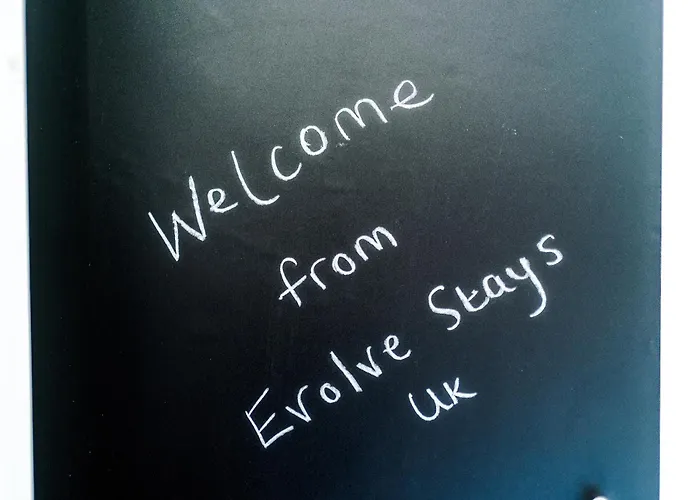 Welcome
from
Evolve Stays
UK